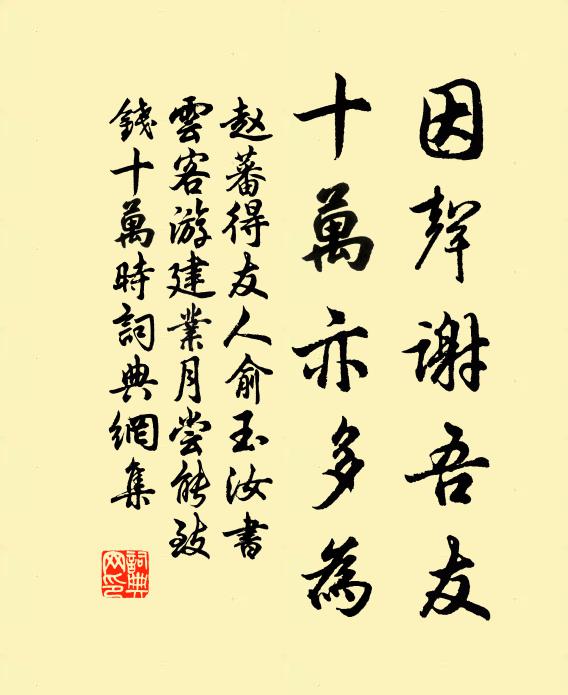 因聲謝吾友
十萬亦多為
赵蕃得友人俞玉汝書
雲客游建業月尝能致
錢十萬時詞典網集
詞典
网印